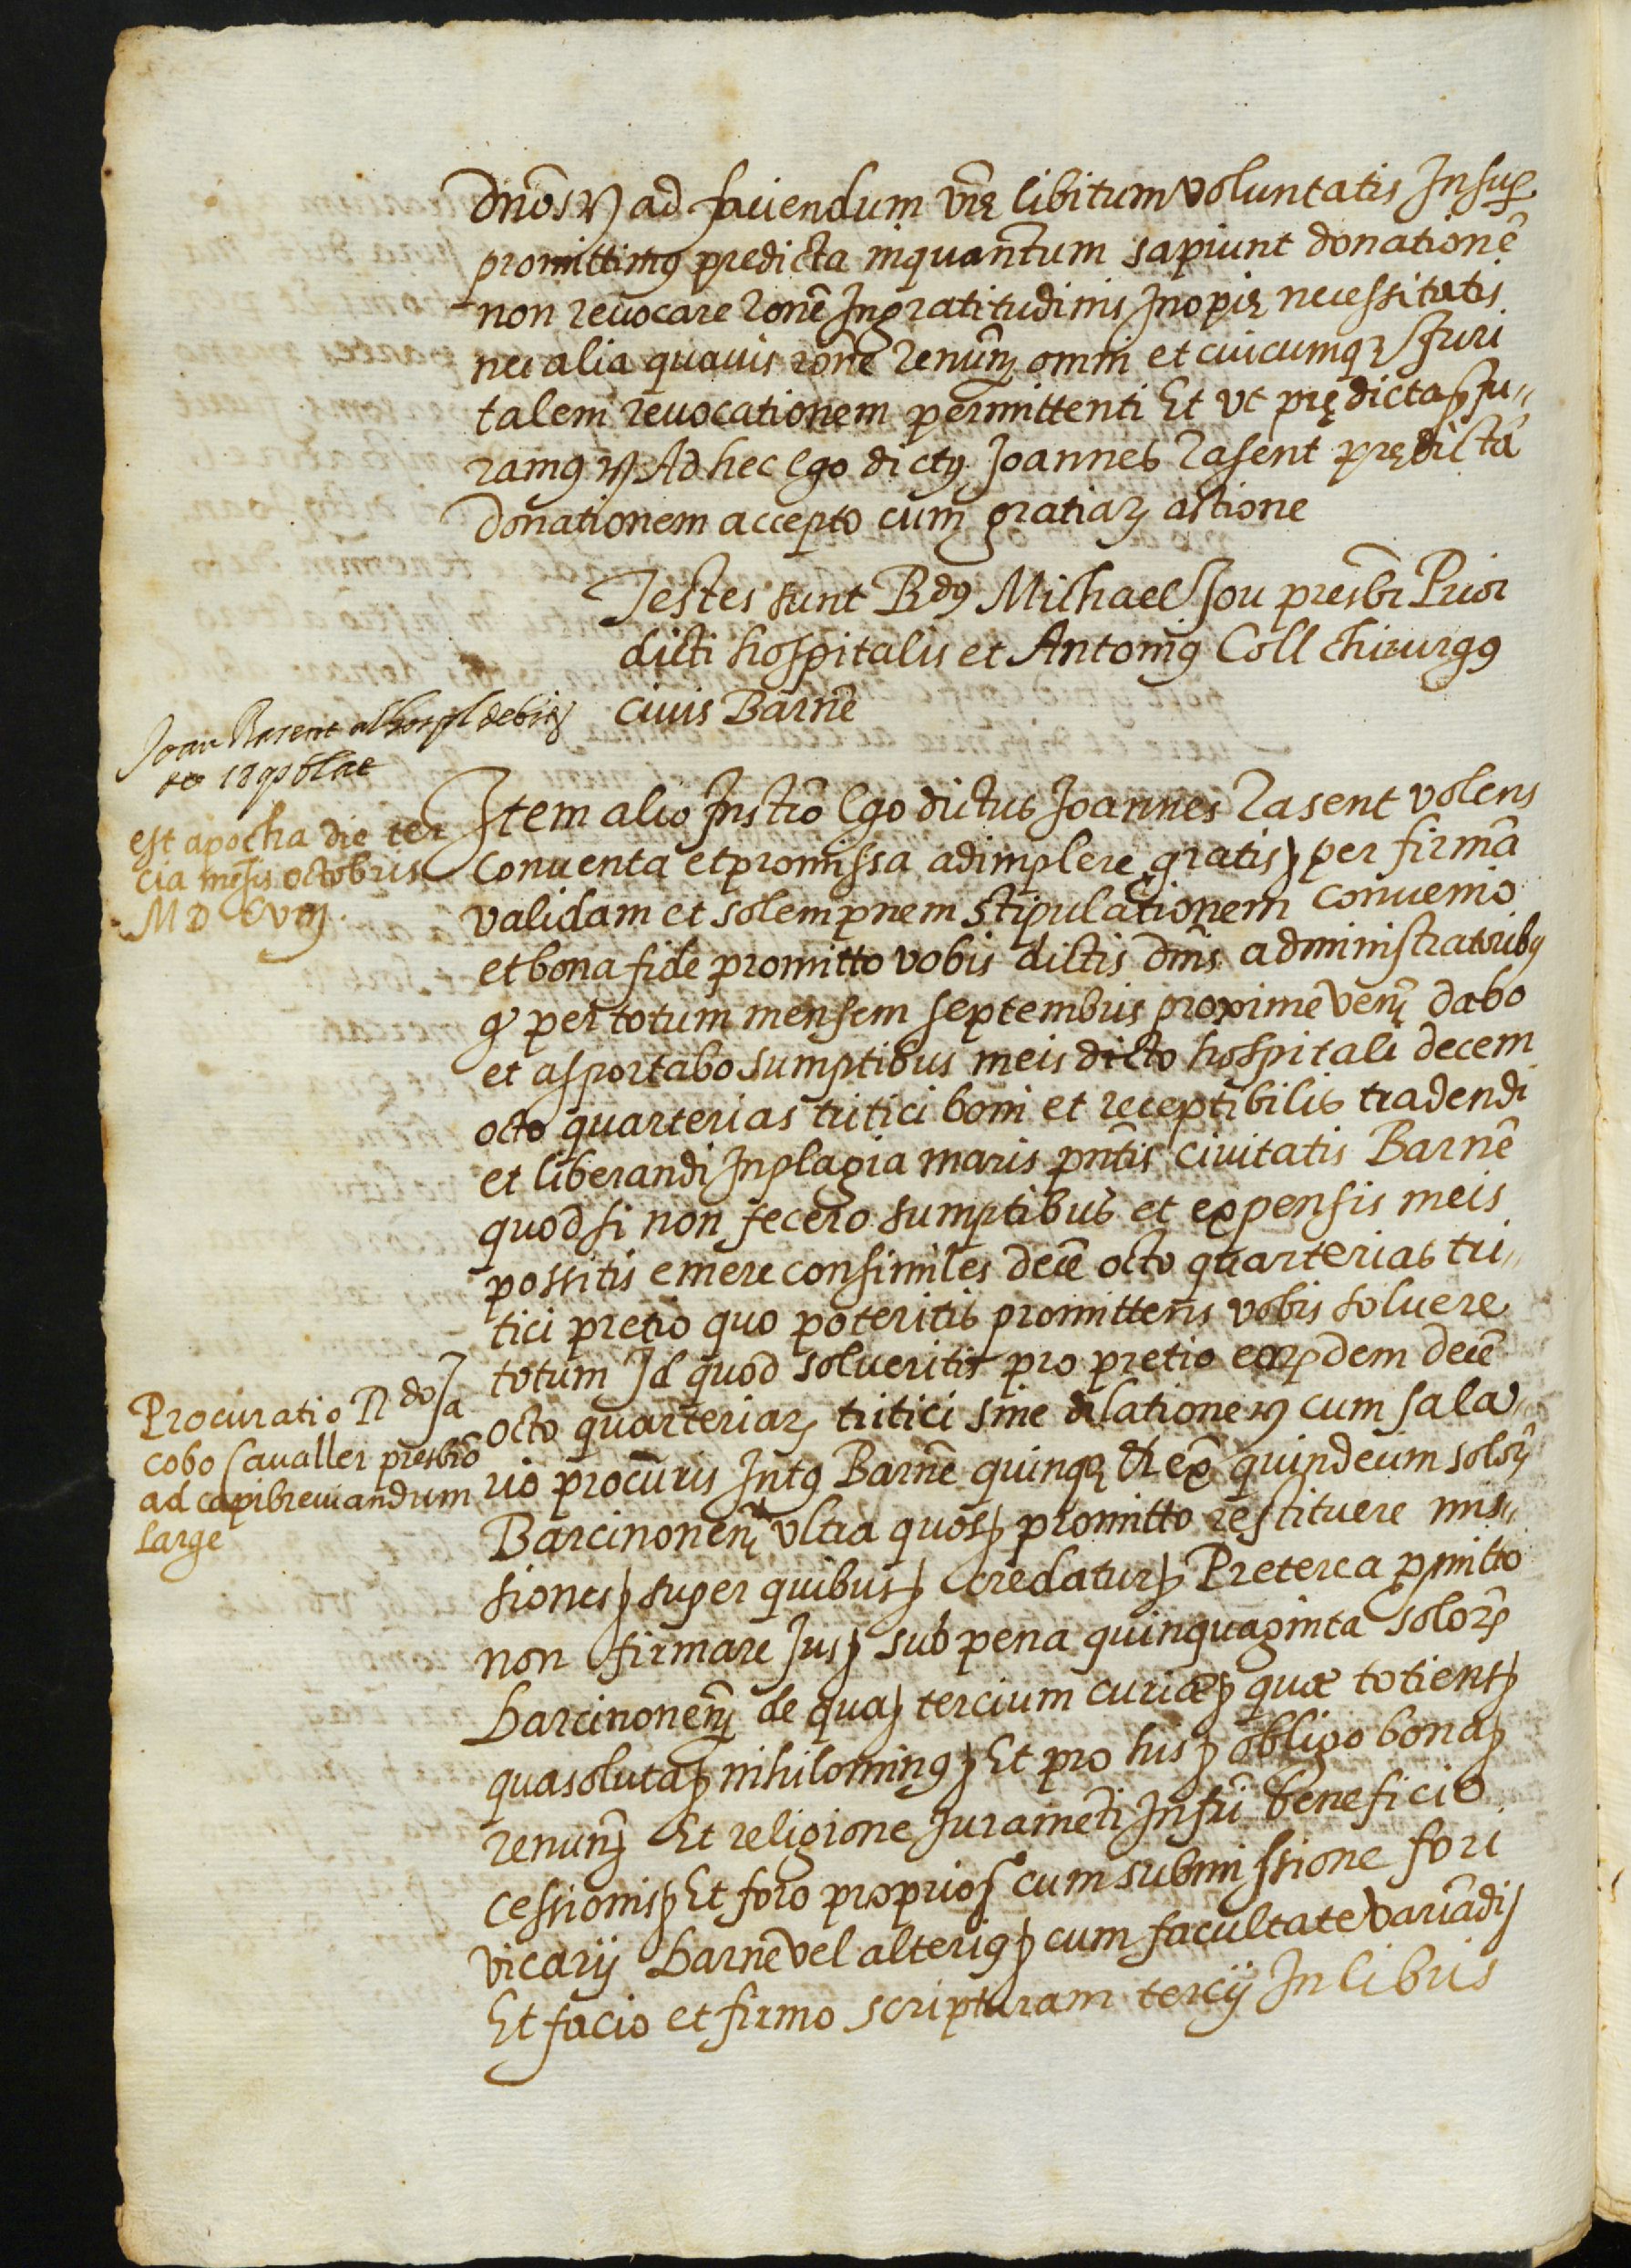 Dños ad faciendum vrę libitum voluntatis Insup
promittimꝰ predicta inquantum sapiunt donationē
non reuocare rone Ingratitudinis Inopię necessitatis
nec alia quauis rone Renunꝫ omni et cuicumqꝫ Juri
talem reuocationem permittenti Et vt prędicta Ju„
ramꝰ Ad hec Ego dictꝰ Joannes Rasent prędictā
donationem accepto cum gratiaꝝ actione
Testes sunt Rdꝰ Michael Jou presbr Prior
dicti hospitalis et Antoniꝰ Coll chirurgꝰ
ciuis Barnē
Joan Rasent al hospl debit
18 qs blat
est apocha die ter
cia mēsis octobris
MDCviij.
Item alio Instrō Ego dictus Joannes Rasent volens
conuenta et promissa adimplere gratis per firmā
validam et solempnem stipulationem conuenio
et bona fide promitto vobis dictis dnis administratoribꝰ
qꝫ per totum mensem septembris proxime venꝫ dabo
et asportabo sumptibus meis dicto hospitali decem
octo quarterias tritici boni et receptibilis tradendi
et liberandi In plagia maris pntis ciuitatis Barnē
quod si non fecero sumptibus et expensis meis
possitis emere consimiles decē octo quarterias tri„
tici pretio quo poteritis promittens vobis soluere
totum Id quod solueritis pro pretio eoꝝdem decē
octo quarteriaꝝ tritici sine dilatione cum sala„
rio procuris Intꝰ Barnē quinqꝫ et ex quindecim solōꝝ
Barcinonenꝫ vltra quos promitto restituere mis„
siones super quibus credatur Preterea pmitto
non firmare Jus sub pena quinquaginta solōꝝ
barcinonenꝫ de qua tercium curiæ quæ totiens
qua soluta nihilominꝰ Et pro his obligo bona
renunꝫ Et religione Juramēti Infri beneficio
cessionis Et foro proprio cum submissione fori
vicarij barnē vel alteriꝰ cum facultate variādi
Et facio et firmo scripturam tercij In libris
Procuratio Rdo Ja
cobo Caualler presbro
ad capibreuiandum
large